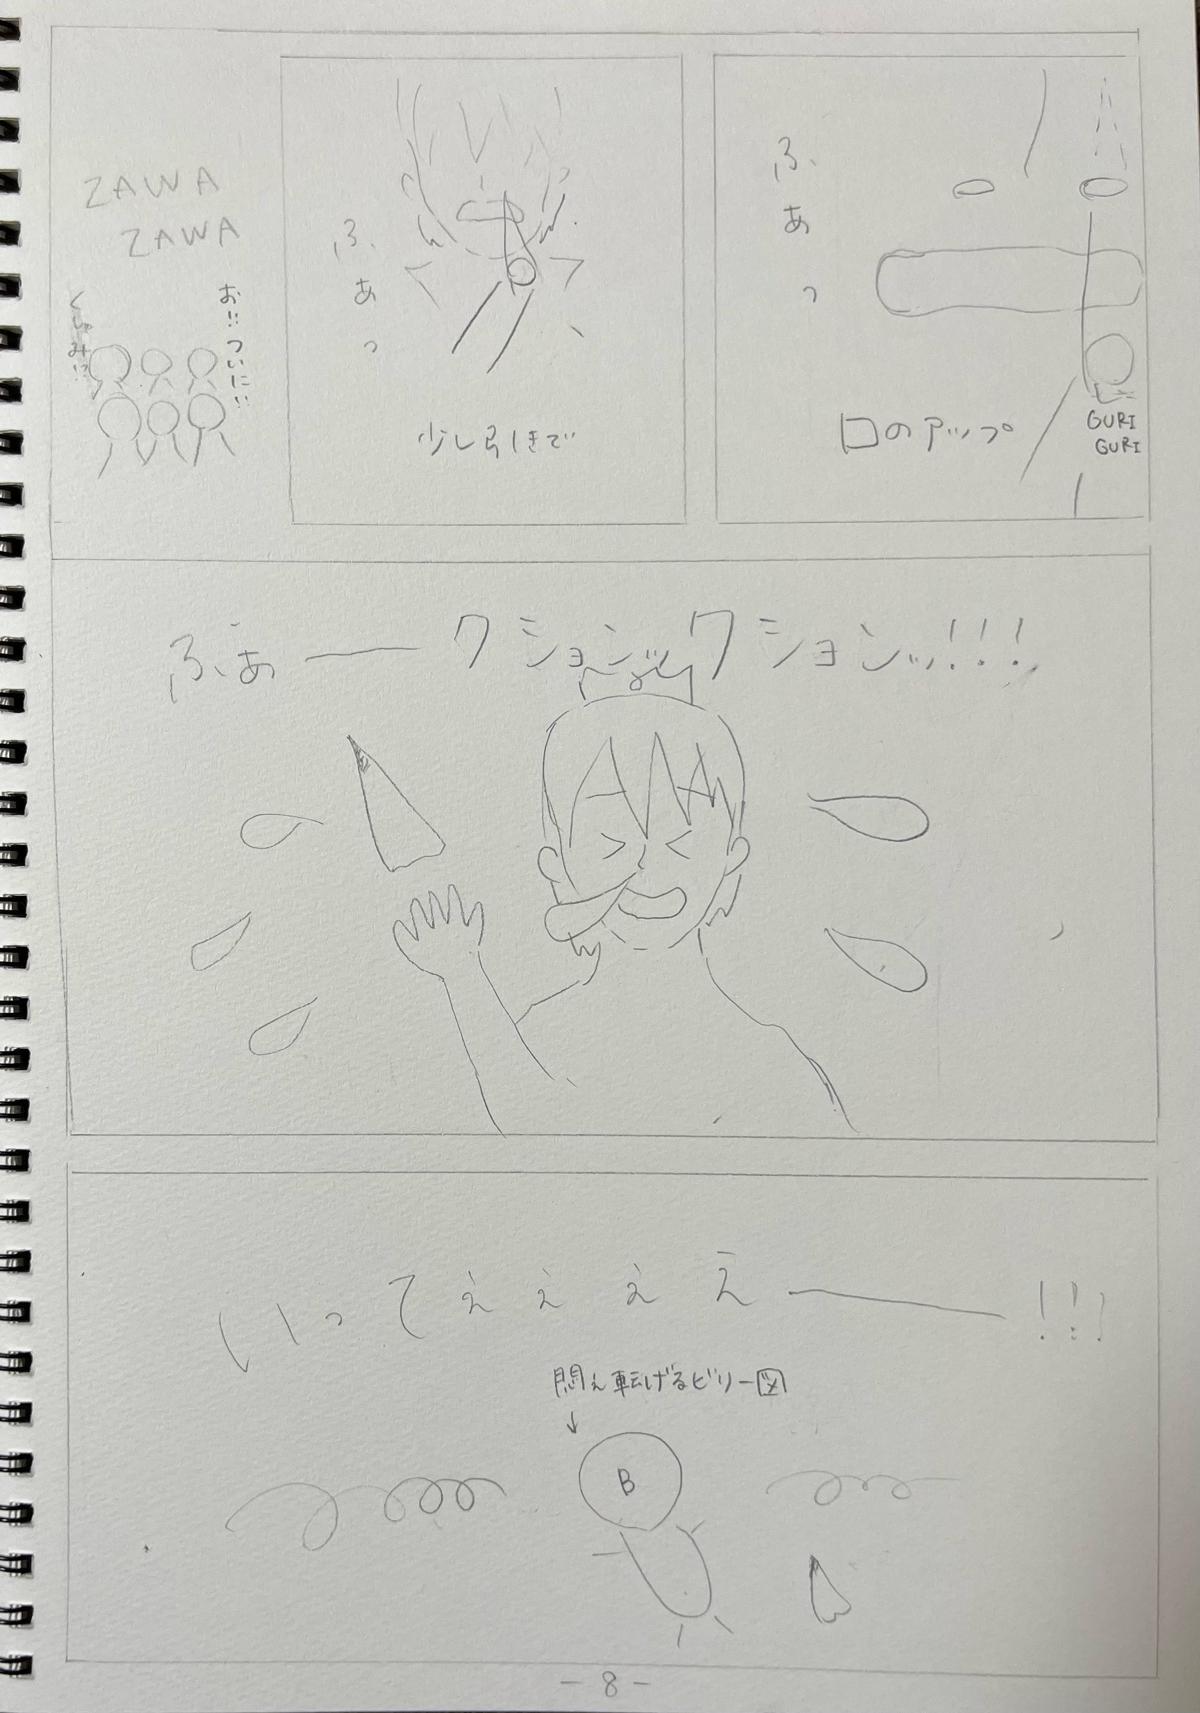 ふぁっ
口のアップ
GURI
GURI
ふぁっ
少し引きで
ZAWA
ZAWA
お!!ついに!!
くしゃみ!?
ふぁークションッックションッ!!!
いってぇぇぇえー!!!
悶え転げるビリー図
↓
B
-8-